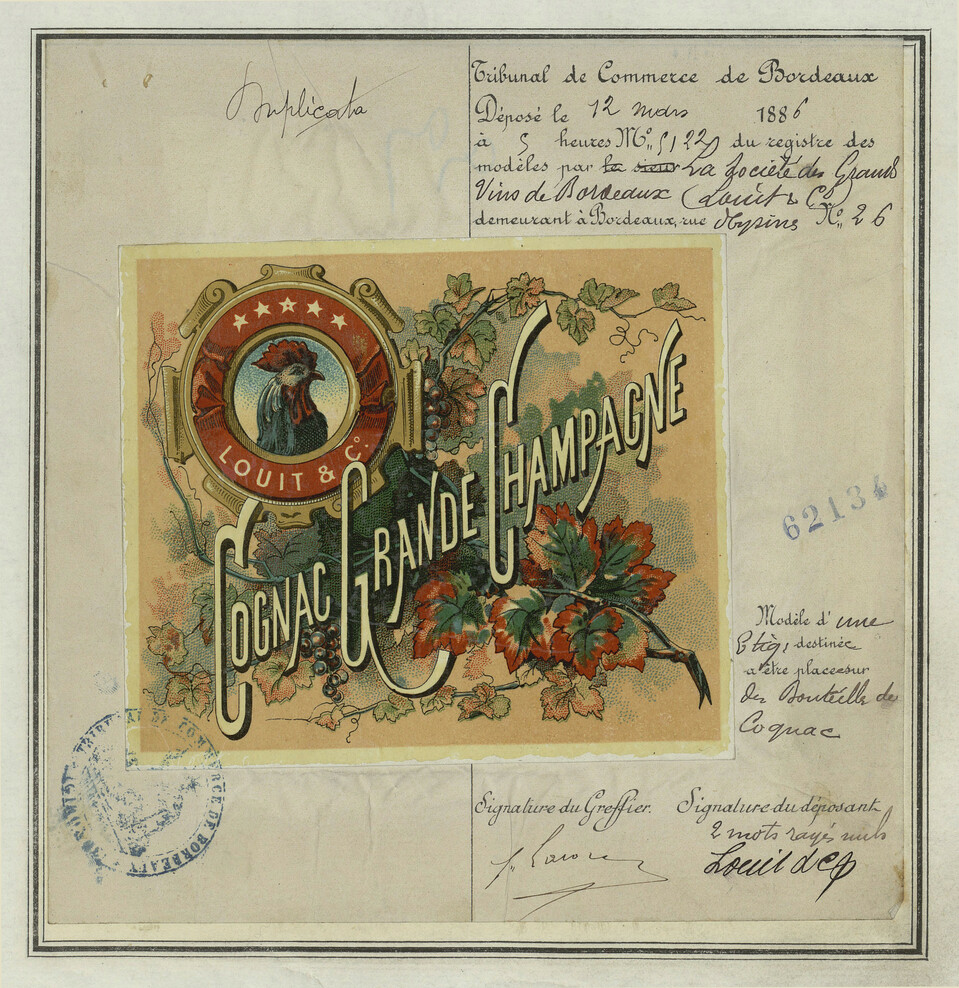 Duplicata
Tribunal de Commerce de Bordeaux
Déposé le 12 mars 1886
à 5 heures No. 5122 du registre des
modèles par le sieur La Société des Grands
Vins de Bordeaux (Louit & Co)
demeurant à Bordeaux, rue No. 26
LOUIT & Co.
COGNAC GRANDE CHAMPAGNE
62134
Modèle d'une
Etiq. destinée
a être placee sur
des Bouteille de
Cognac
TRIBUNAL DE COMMERCE DE BORDEAUX
Signature du Greffier. Signature du déposant
2 mots rayés nuls
Louit & Co